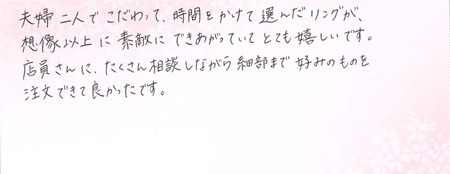 夫婦二人でこだわって、時間をかけて選んだリングが、
想像以上に素敵にできあがっていてとても嬉しいです。
店員さんに、たくさん相談しながら細部まで好みのものを
注文できて良かったです。